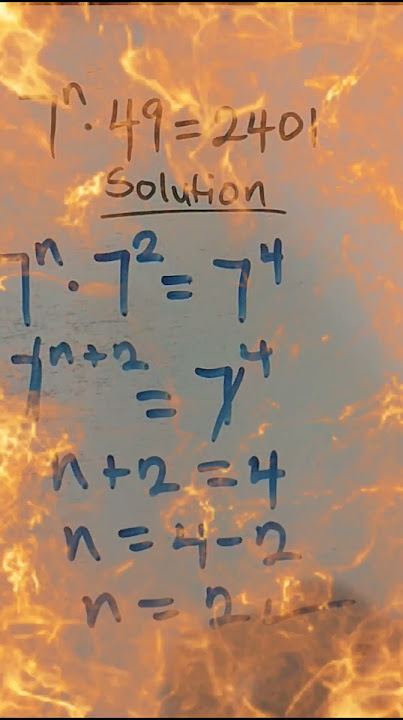 7ⁿ · 49 = 2401
Solution
7ⁿ · 7² = 7⁴
7ⁿ⁺² = 7⁴
n + 2 = 4
n = 4 - 2
n = 2